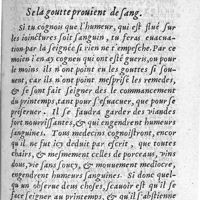 Se la goutte prouient de sang.
Si tu cognois que l'humeur, qui est flué sur
les ioinctures soit sanguin, tu feras euacua-
tion par la seignée si rien ne t'empesche. Par ce
moien i'en ay cogneu qui ont esté gueris, ou pour
le moins ils n'ont point eu les gouttes si sou-
uent, car ils n'ont point mesprisé les remedes,
& se sont fait seigner des le commancement
du printemps, tant pour s'esuacuer, que pour se
preseruer. Il se faudra garder des viandes
fort nourrissantes, & qui engendrent humeurs
sanguines. Tous medecins cognoistront, encor
qu'il ne fut icy deduit par escrit, que toutes
chairs, & mesmement celles de porceau, vins
doux, vie sans soucy, & mouuement mediocre,
engendrent humeurs sanguines. Si donc quel-
qu'un obserue deux choses, sçauoir est qu'il se
face seigner au printemps, & qu'il s'abstienne